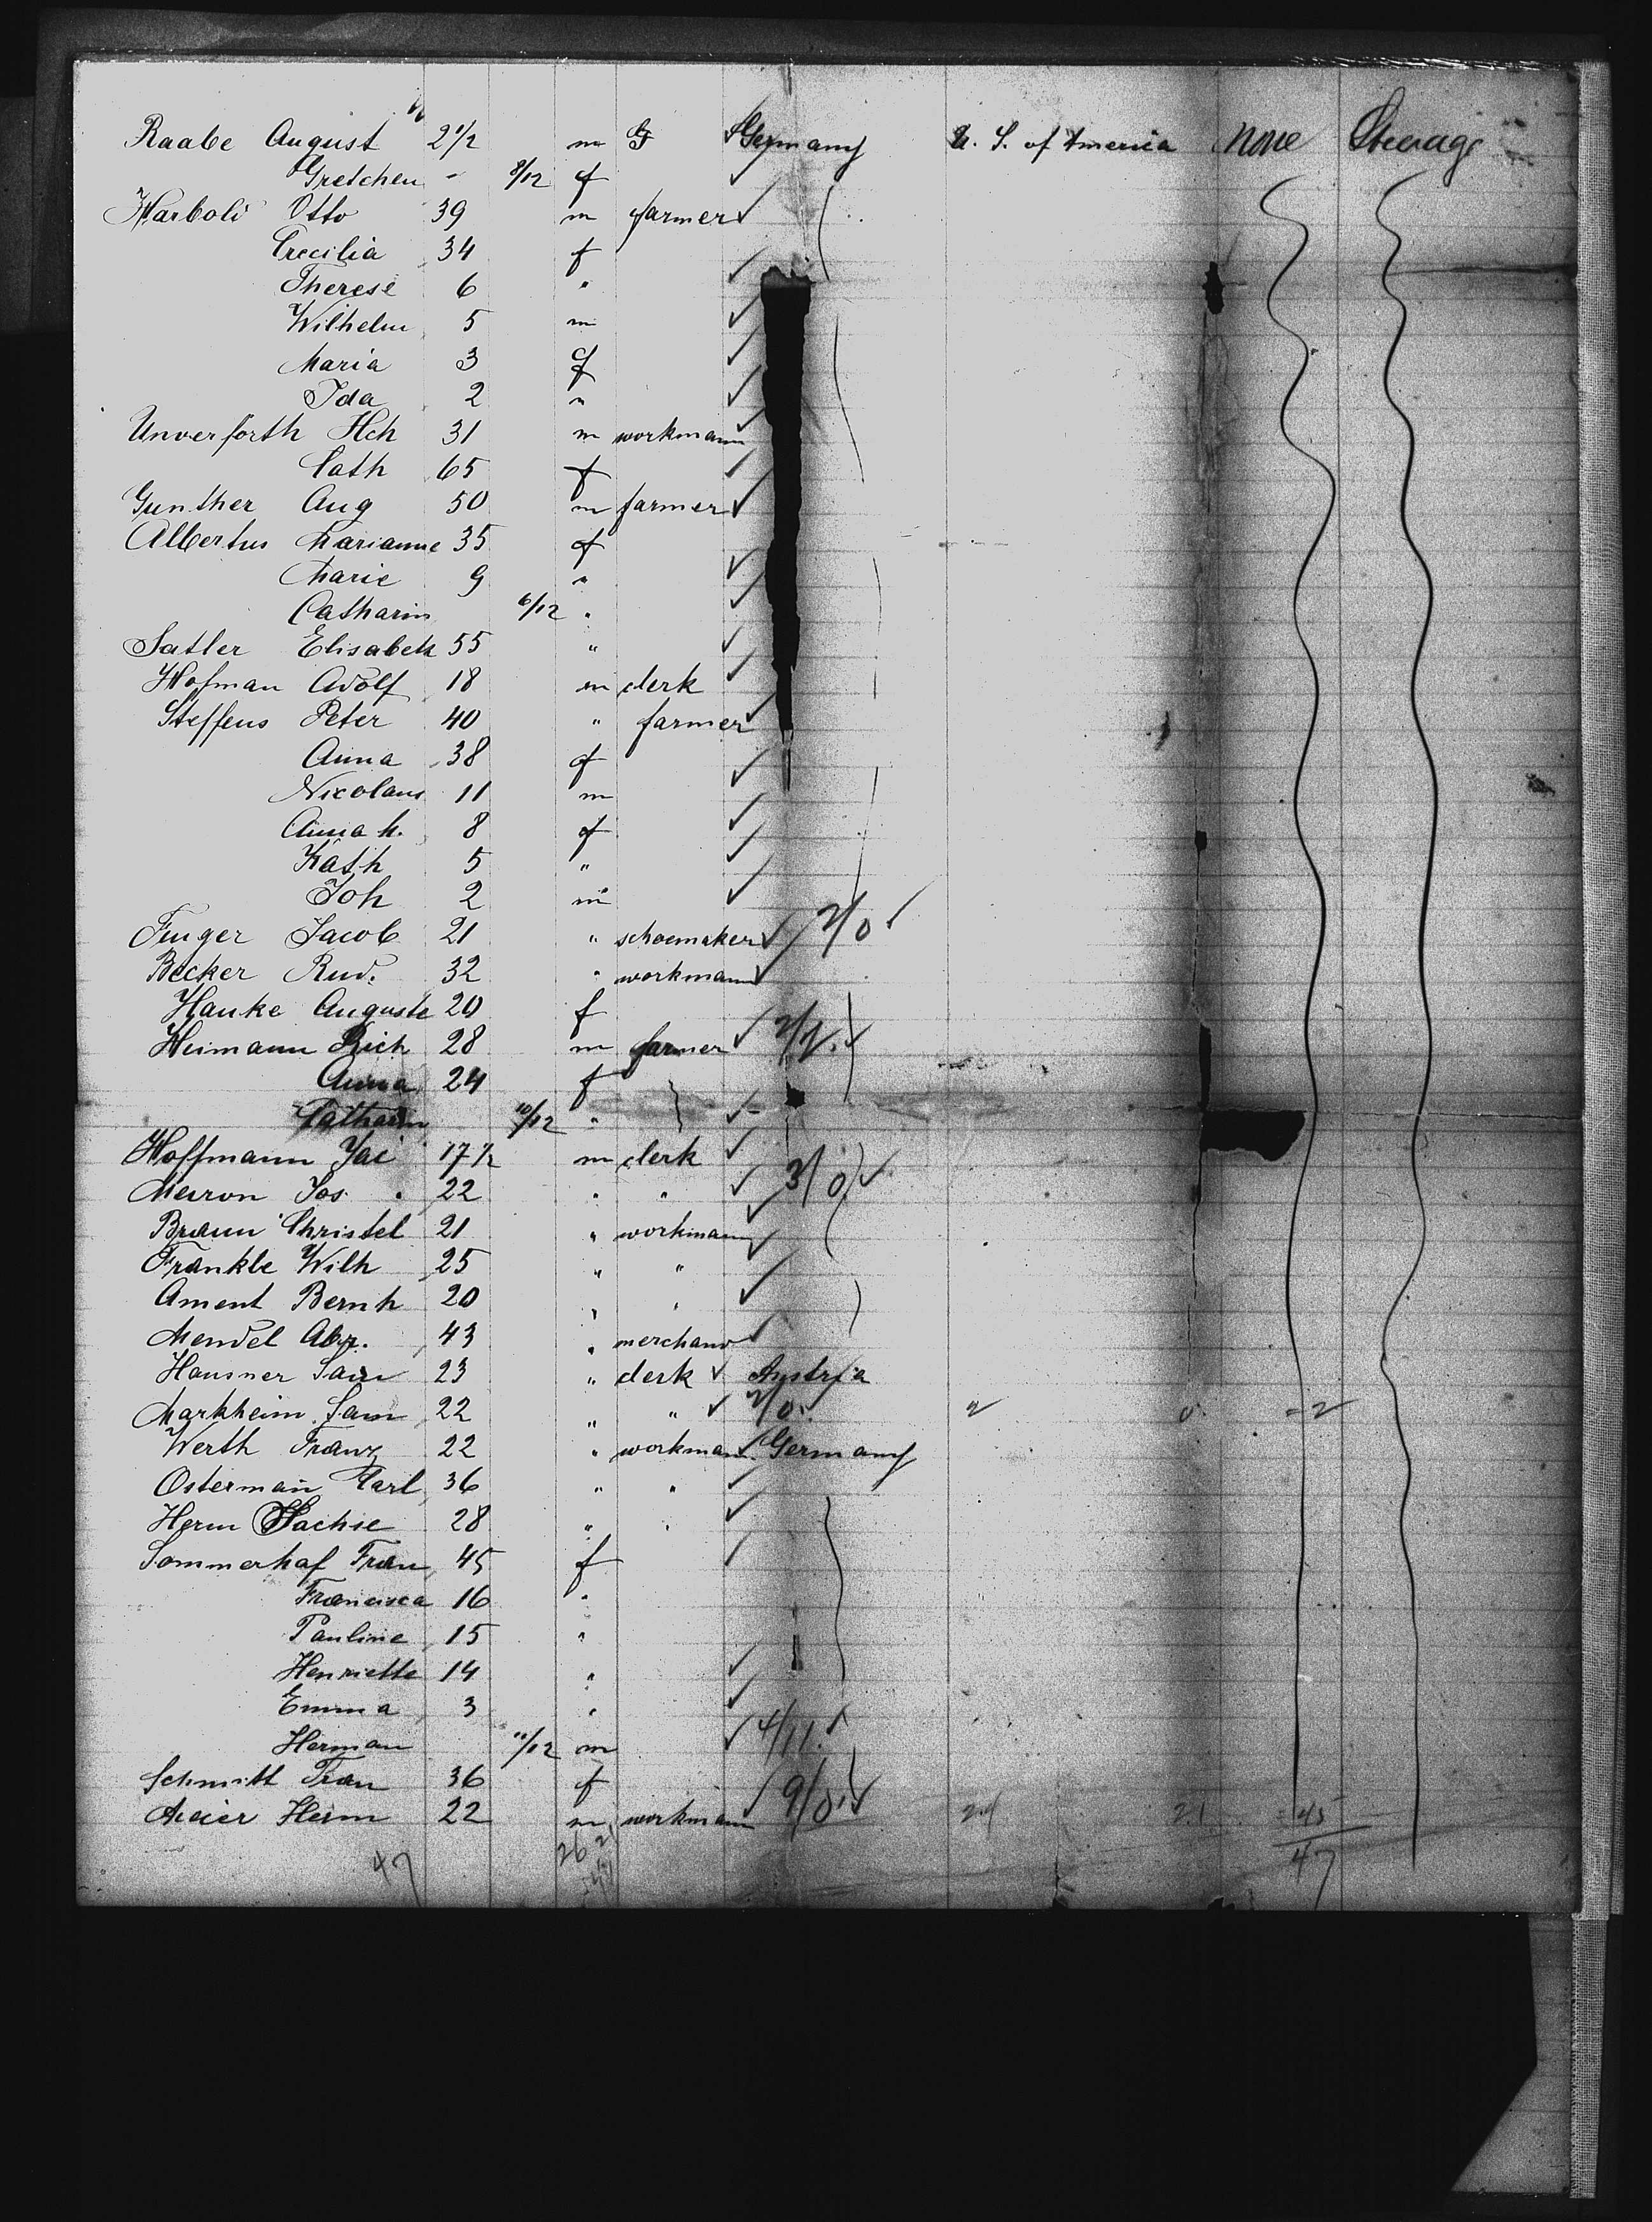 Raabe August 2 1/2 m G Germany U. S. of America none Steerage
Gretchen - 8/12 f
Harbold Otto 39 m farmer
Cecilia 34 f
Therese 6 "
Wilhelm 5 m
Maria 3 f
Ida 2 "
Unverforth Hch 31 m workmann
Cath 65 f
Gunther Aug 50 m farmer
Albertus Marianne 35 f
Marie 9 "
Catharin 6/12 "
Satler Elisabeth 55 "
Hofman Adolf 18 m clerk
Steffens Peter 40 " farmer
Anna 38 f
Nicolaus 11 m
Anna M. 8 f
Käth 5 "
Joh 2 m
Finger Jacob 21 " schoemaker 2/0
Becker Rud. 32 " workmann
Hanke Auguste 20 f
Heimann Rich 28 m farmer
Anna 24 f
Catharin 10/12 "
Hoffmann Jac 17 1/2 m clerk
Jos. 22 " " 3/0
Braun Christel 21 " workmann
Frankle Wilh 25 " "
Ament Bernh 20 " "
Mendel Abr. 43 " merchand
Hausner Sam 23 " clerk Austria
Markheim Sam 22 " " 2/0 2 0 = 2
Werth Franz 22 " workman Germany
Osterman Carl 36 " "
Herm Sachse 28 " "
Sommerhof Frau 45 f
Francisca 16 "
Pauline 15 "
Henriette 14 "
Emma 3 "
Herman 11/12 m 4/11
Schmitt Frau 36 f
Meier Herm 22 m workmann 9/0 24 21 = 45
47 26 21 47